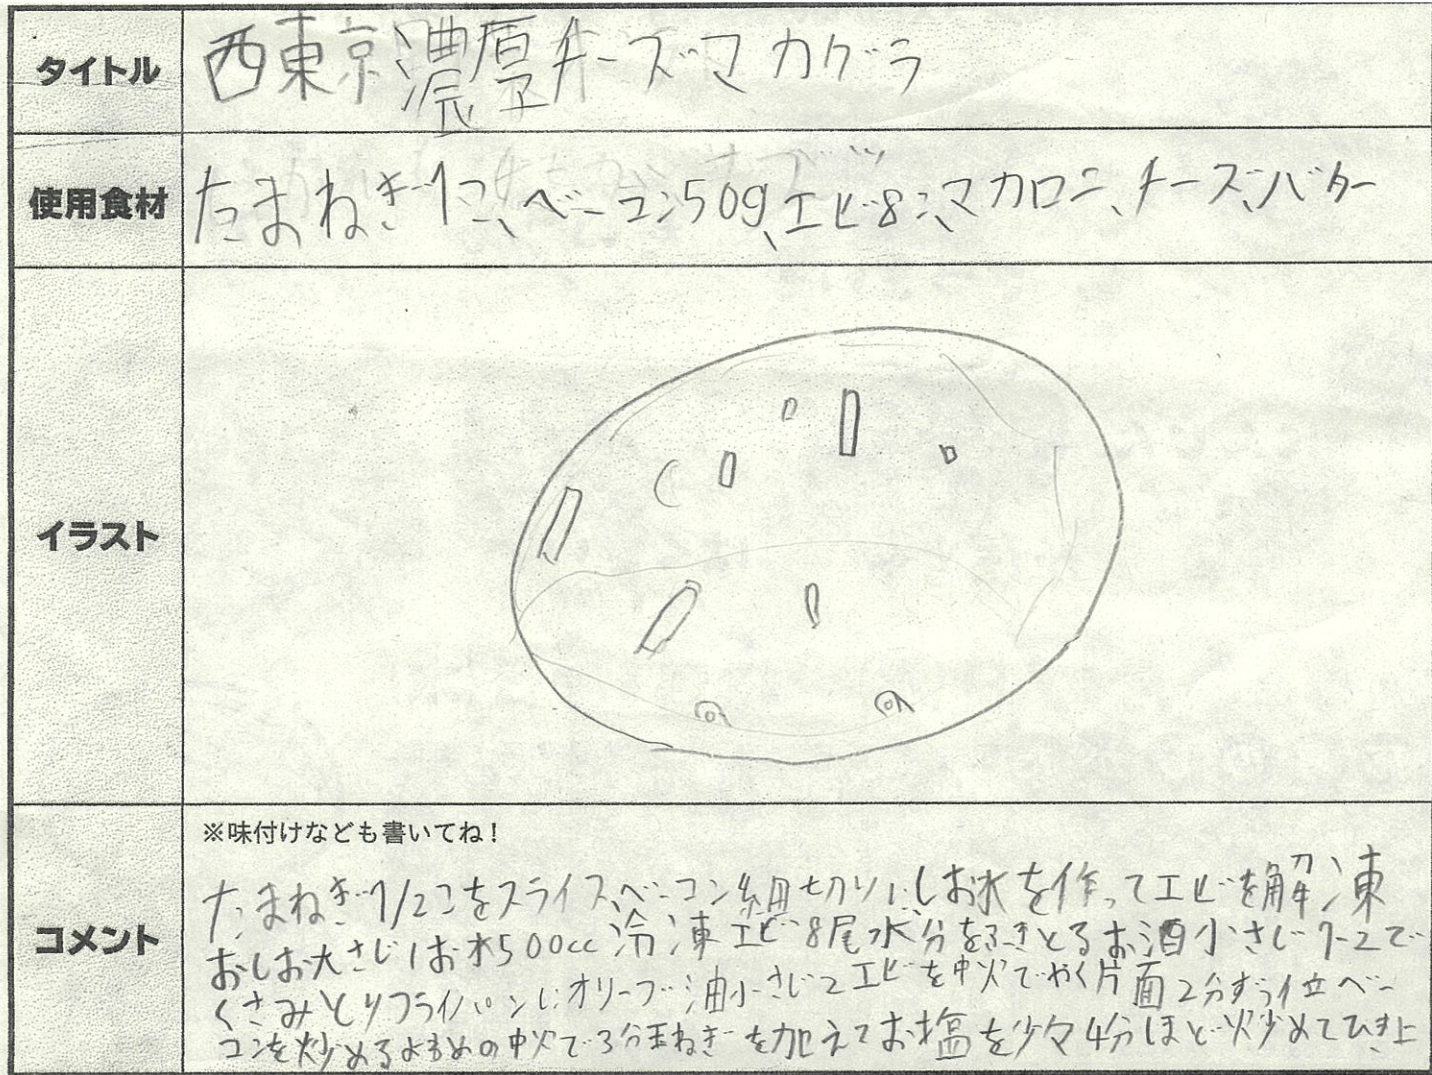 タイトル
西東京濃厚チーズマカグラ
使用食材
たまねぎ1こ、ベーコン50g、エビ8こ、マカロニ、チーズ、バター
イラスト
コメント
※味付けなども書いてね！
たまねぎ1/2こをスライス、ベーコン細切りにしお水を作ってエビを解凍
おしお大さじ1お水500cc冷凍エビ8尾水分をふきとるお酒小さじ1-2で
くさみとりフライパンにオリーブ油小さじ2エビを中火でやく片面2分ずつ ベー
コンを炒めるよわめの中火で3分玉ねぎを加えてお塩を少々4分ほど炒めてひき上